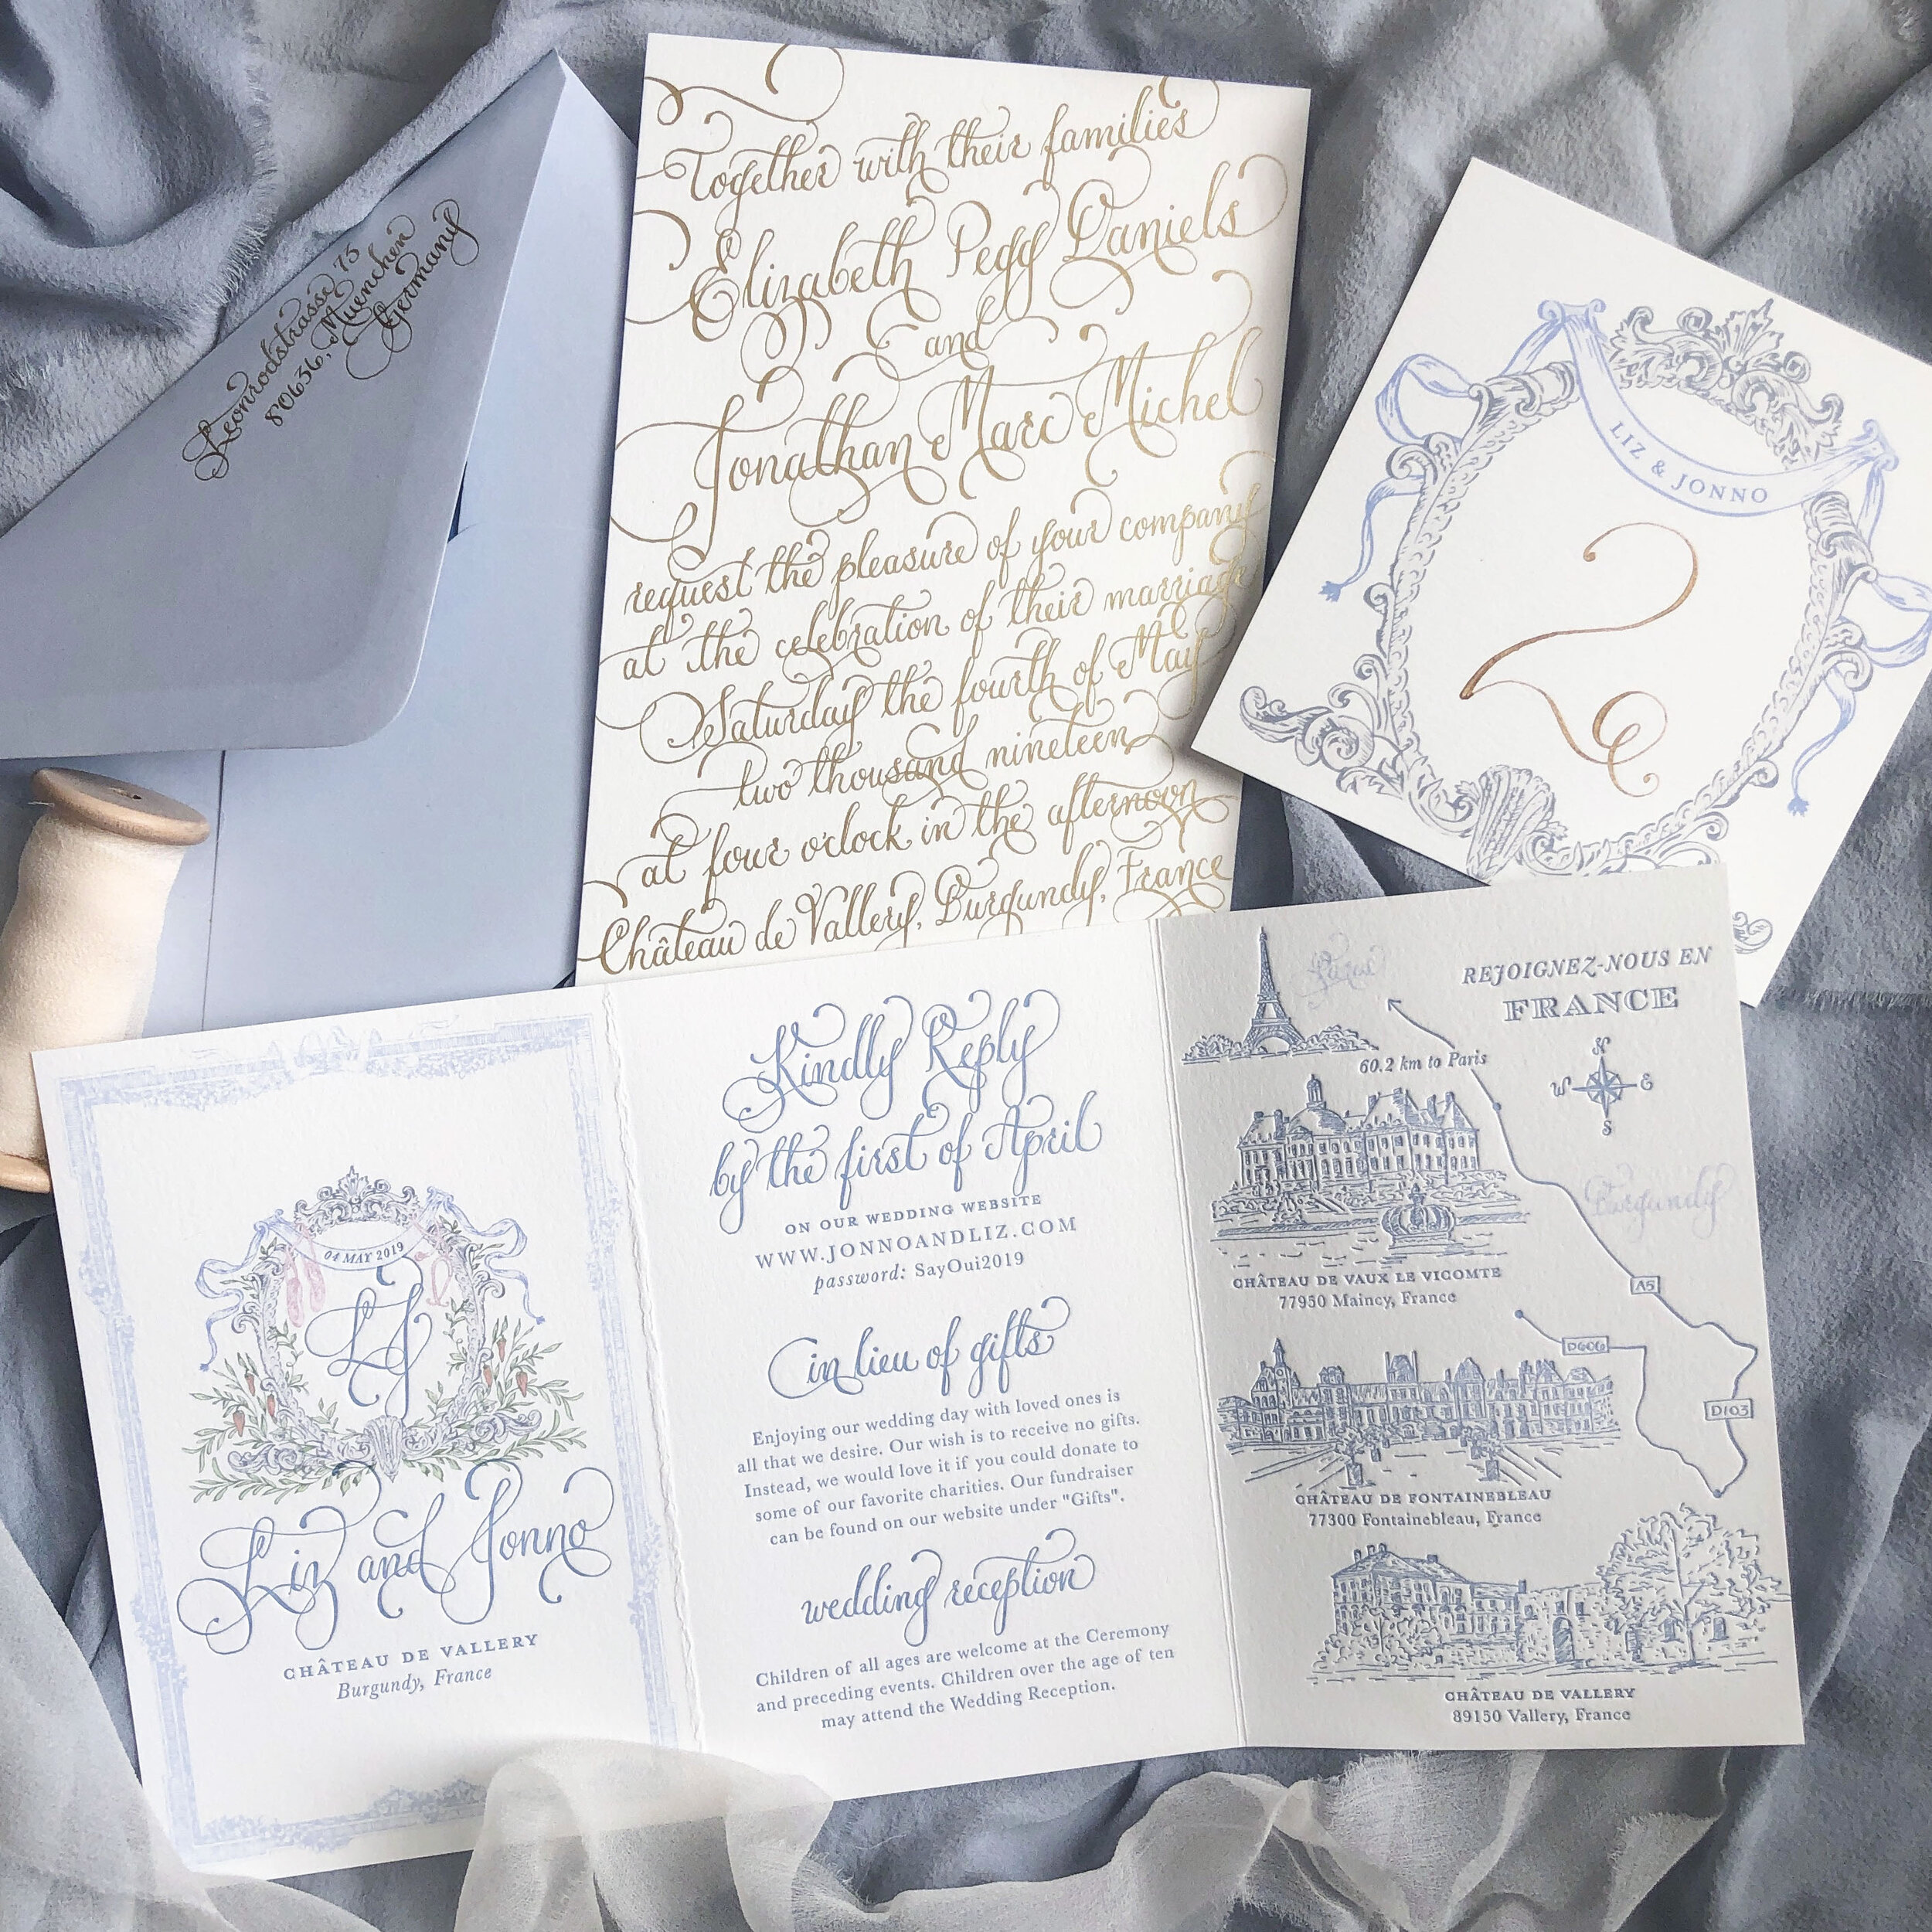 Leonrodstrasse 75
80636, Muenchen
Germany
Together with their families
Elizabeth Pegg Daniels
and
Jonathan Marc Michel
request the pleasure of your company
at the celebration of their marriage
Saturday the fourth of May
two thousand nineteen
at four o'clock in the afternoon
Château de Vallery, Burgundy, France
LIZ & JONNO
2
04 MAY 2019
LJ
Liz and Jonno
CHÂTEAU DE VALLERY
Burgundy, France
Kindly Reply
by the first of April
ON OUR WEDDING WEBSITE
WWW.JONNOANDLIZ.COM
password: SayOui2019
in lieu of gifts
Enjoying our wedding day with loved ones is
all that we desire. Our wish is to receive no gifts.
Instead, we would love it if you could donate to
some of our favorite charities. Our fundraiser
can be found on our website under "Gifts".
wedding reception
Children of all ages are welcome at the Ceremony
and preceding events. Children over the age of ten
may attend the Wedding Reception.
Paris
REJOIGNEZ-NOUS EN
FRANCE
60.2 km to Paris
N
W E
S
Burgundy
CHÂTEAU DE VAUX LE VICOMTE
77950 Maincy, France
A5
D606
D103
CHÂTEAU DE FONTAINEBLEAU
77300 Fontainebleau, France
CHÂTEAU DE VALLERY
89150 Vallery, France